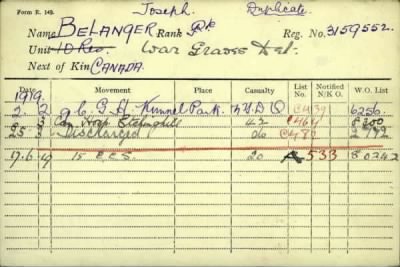 Form E. 149. Joseph Duplicate.
Name BELANGER Rank Pte Reg. No. 3159552.
Unit 10 Res War Graves Det.
Next of Kin CANADA.
Date Movement Place Casualty List No. Notified N/K O. W.O. List
1919.
2 . 2 9 C. G. H. Kinmel Park. C439 6256
3 Can Hosp Etchinghill 42 C464 8200
25 . 3 Discharged 06 C482
17.6.19 15 C.C.S. 20 A 533 80242